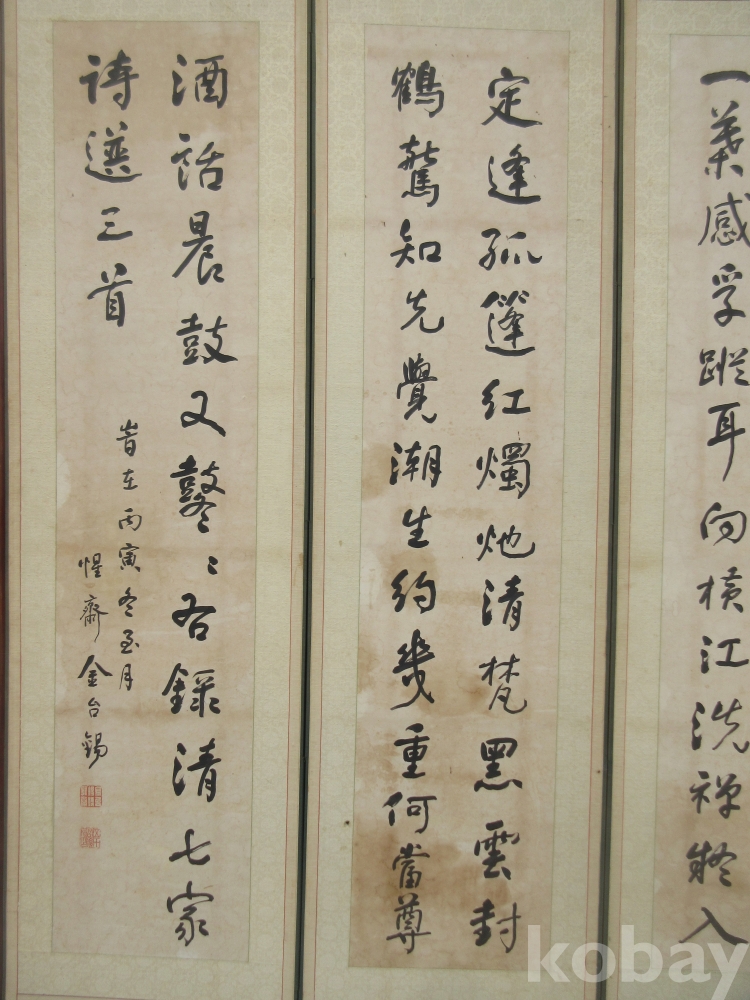 一葉感孚蹤耳向橫江洗禪
入
定逢孤篷紅燭灺清梵黑雲封
鶴驚知先覺潮生約幾重何當尊
酒話晨鼓又鼕〻右錄清七家
詩選三首
昔在丙寅冬至月
惺齋金台錫
kobay